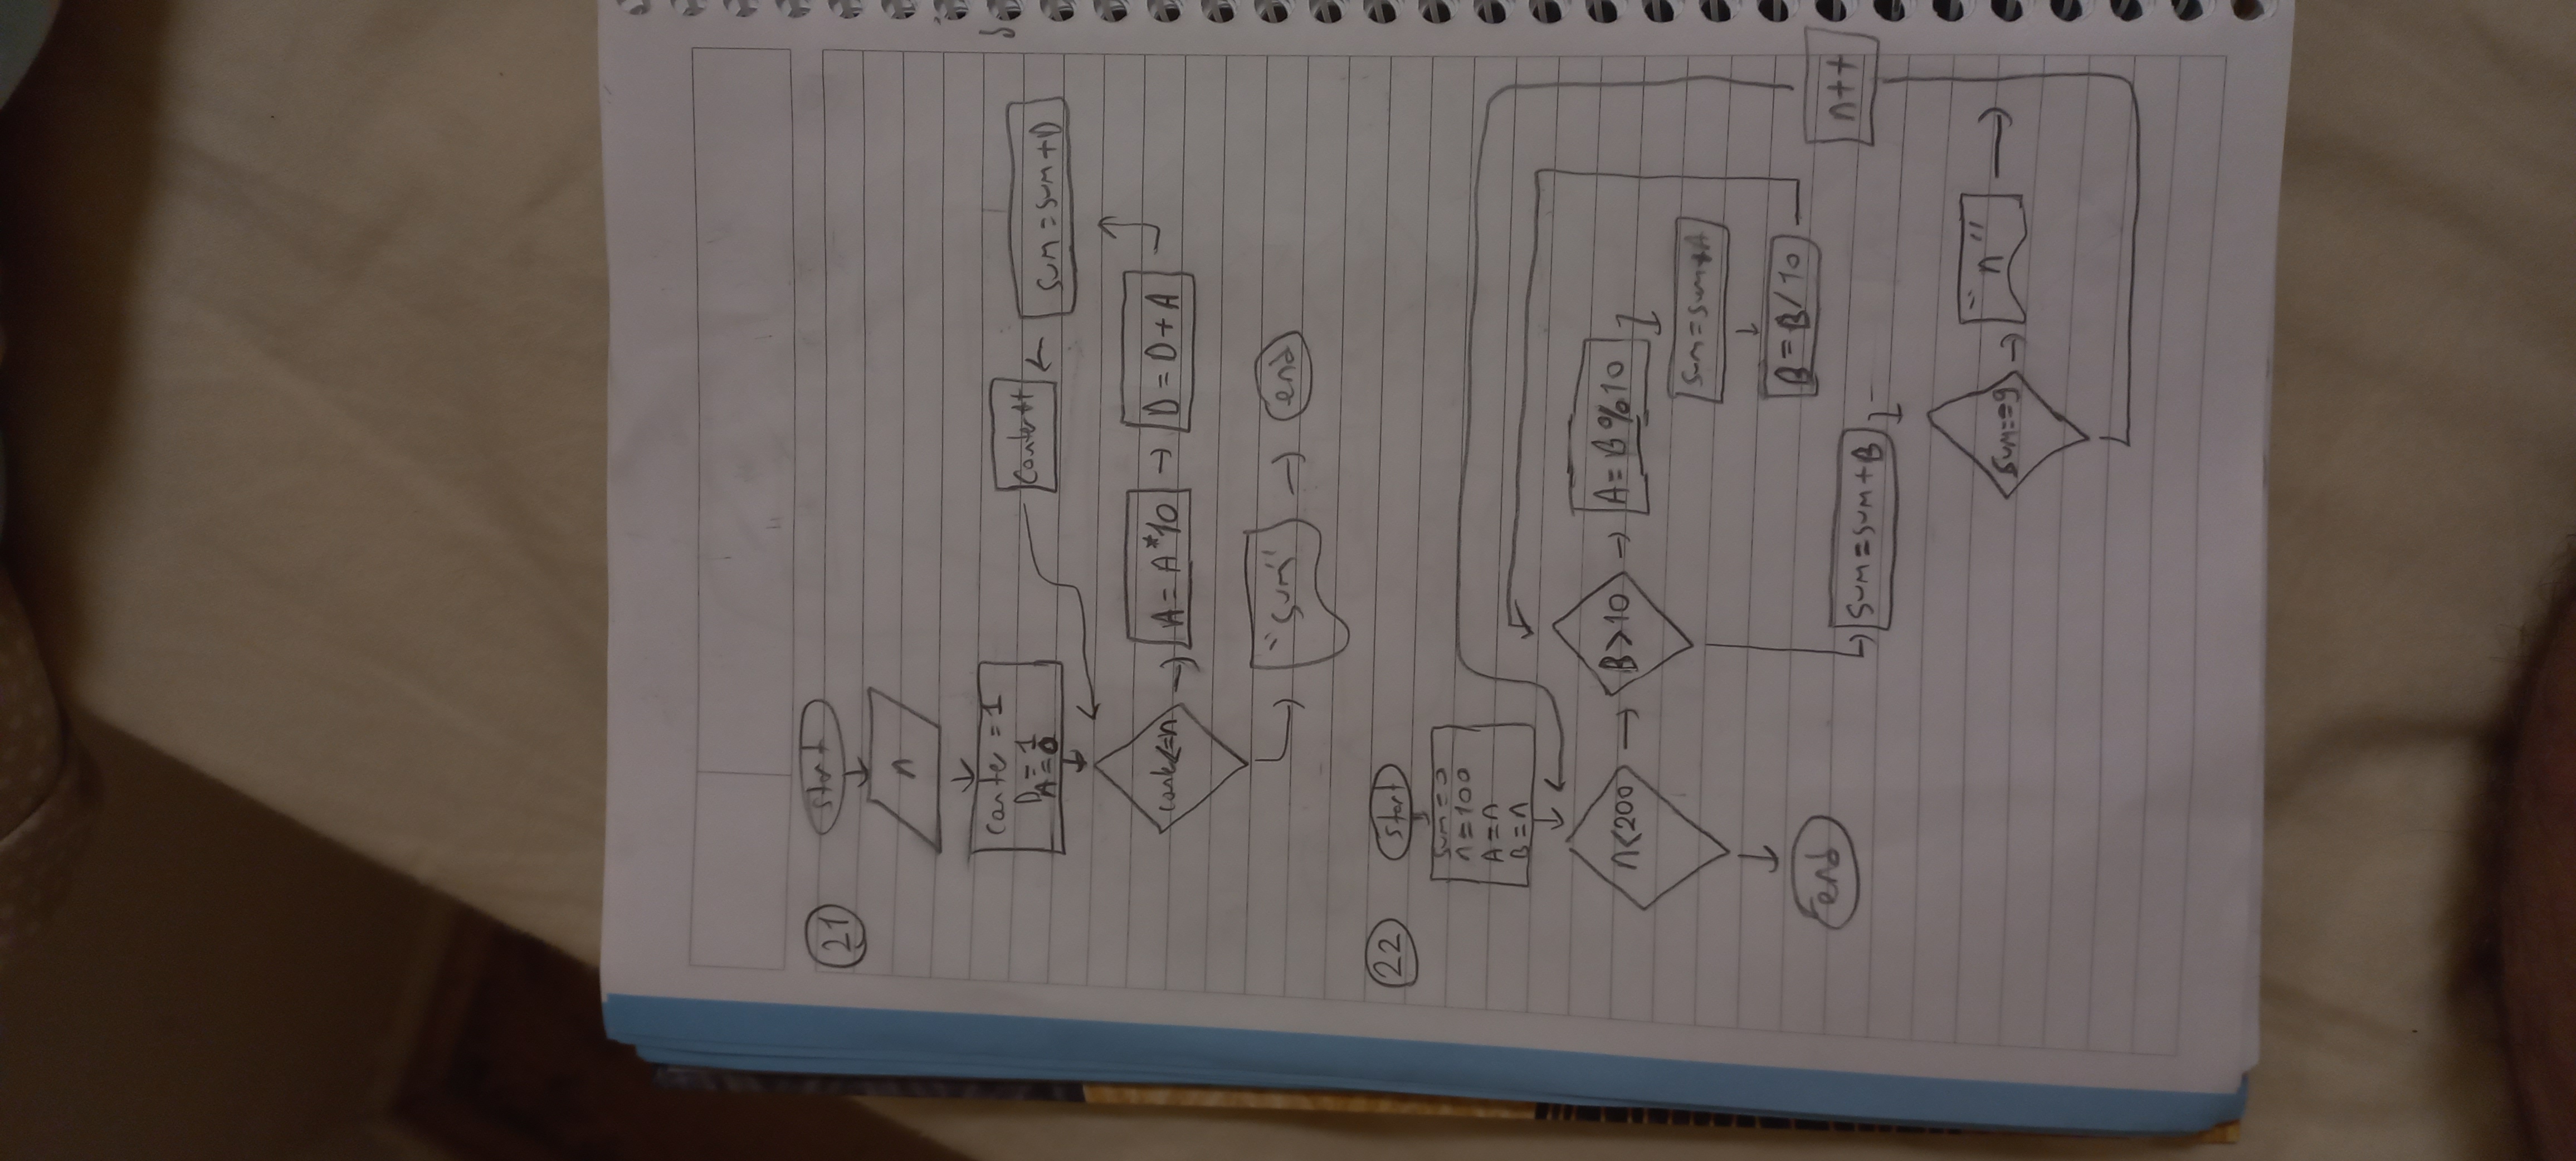 21
start
n
conter = 1
D = 1
A = 0
conter++
sum = sum + D
cont<=n
A = A*10
D = D + A
"sum"
end
22
start
sum = 0
n = 100
A = n
B = n
n<200
B>10
A = B%10
sum = sum+A
B = B/10
end
n++
sum = sum+B
sum==9
"n"